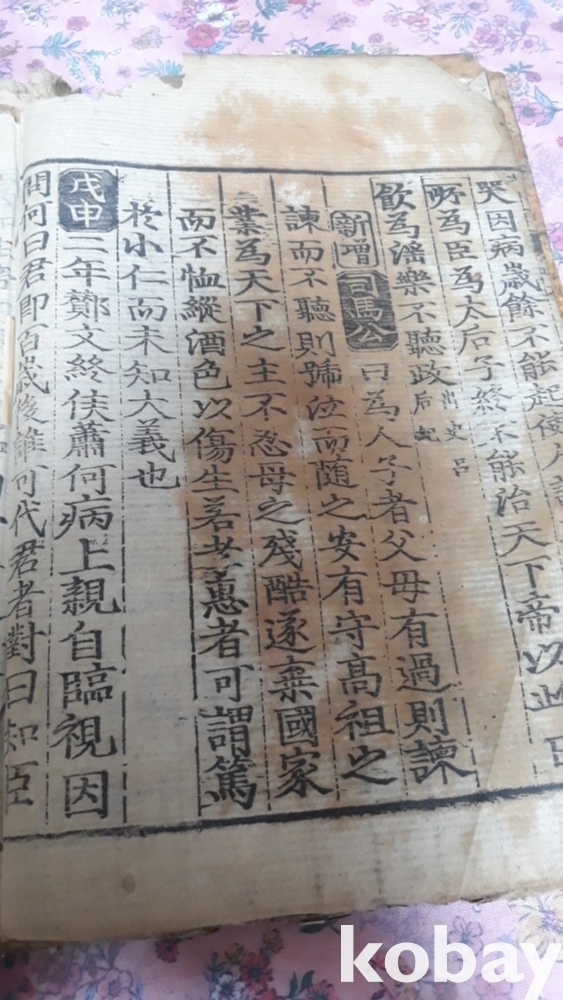 哭因病歲餘不能起使人請
所爲臣爲太后子終不能治天下帝以此日
飮爲滛樂不聽政出史呂后紀
新增司馬公曰爲人子者父母有過則諫
諫而不聽則號泣而随之安有守髙祖之
業爲天下之主不忍母之殘酷遂棄國家
而不恤縱酒色以傷生若孝惠者可謂篤
扵小仁而未知大義也
戊申二年酇文終侯蕭何病上親自臨視因
問何曰君即百歲後誰可代君者對曰知臣
kobay